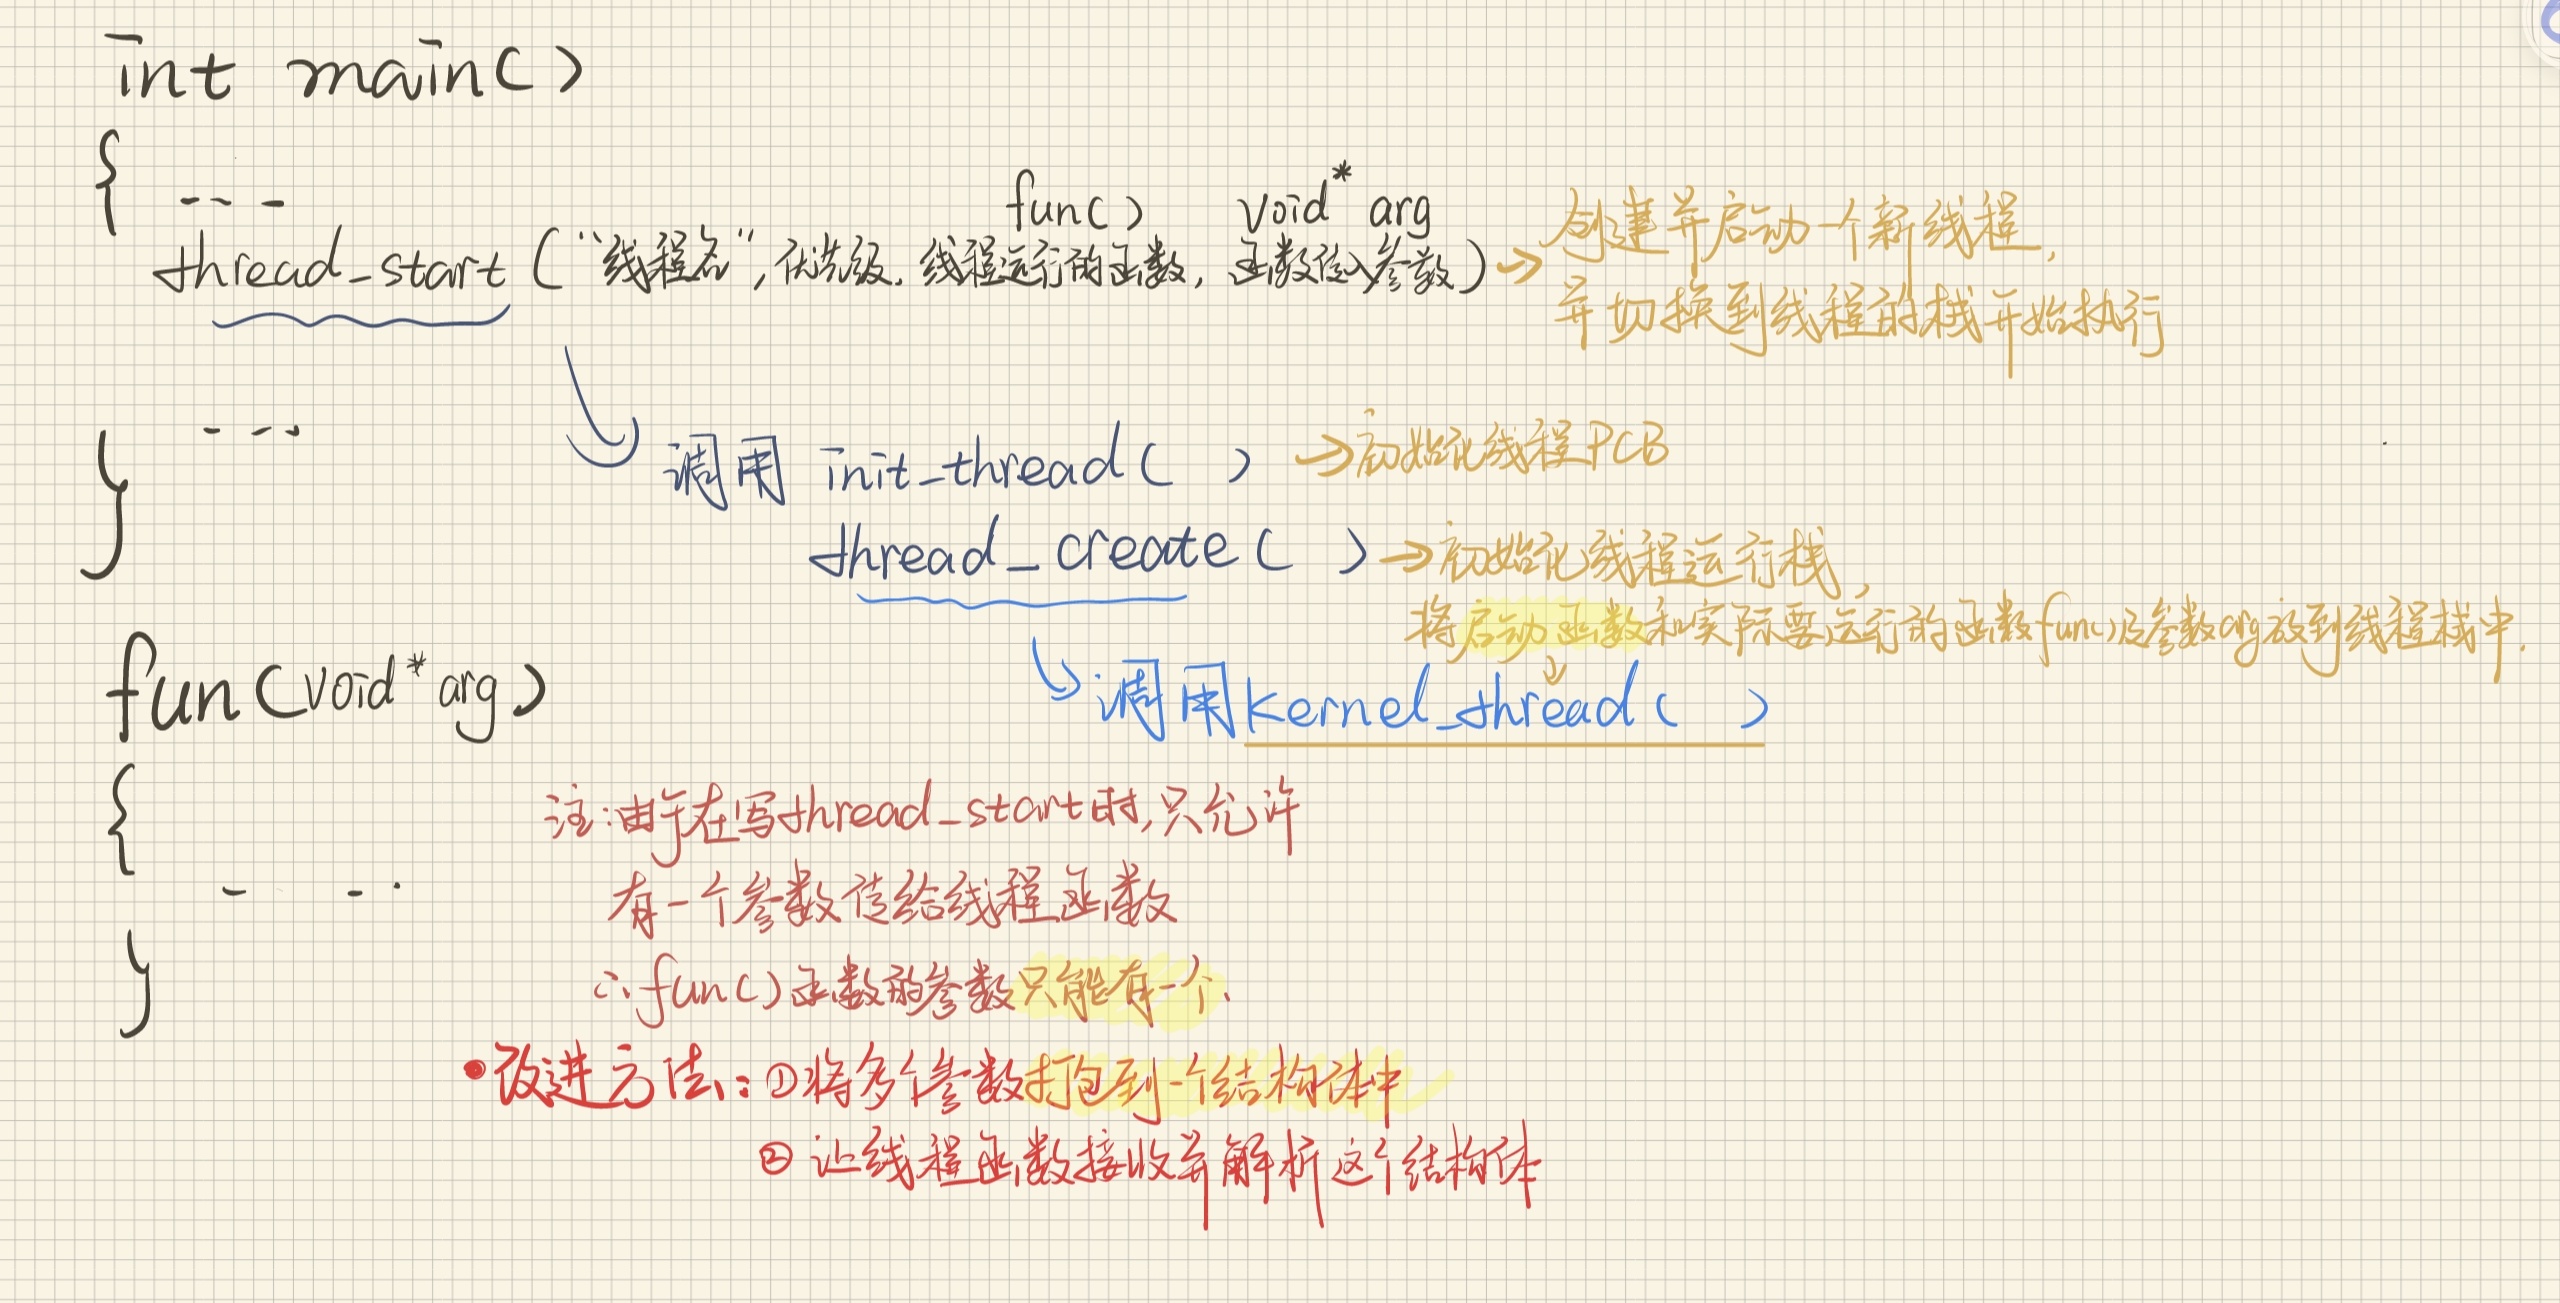 int main()
{
....
func() void* arg
thread_start("线程名",优先级,线程运行的函数,函数传入参数) → 创建并启动一个新线程,
并切换到线程的栈开始执行
....
}
调用 init_thread( ) → 初始化线程PCB
thread_create( ) → 初始化线程运行栈,
将启动函数和实际要运行的函数func()及参数arg放到线程栈中.
调用kernel_thread( )
fun(void* arg)
{
....
}
注:由于在写thread_start时,只允许
有一个参数传给线程函数
∴func()函数的参数只能有一个.
•改进方法:①将多个参数打包到一个结构体中
②让线程函数接收并解析这个结构体